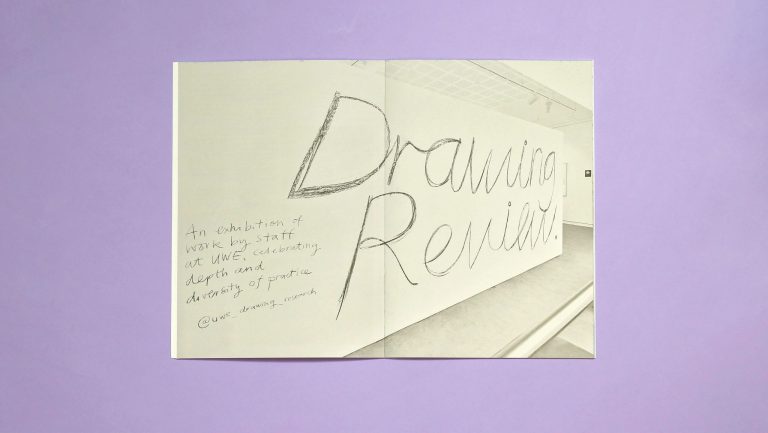 Drawing
Review.
An exhibition of
work by staff
at UWE. Celebrating
depth and
diversity of practice
@uwe_drawing_research